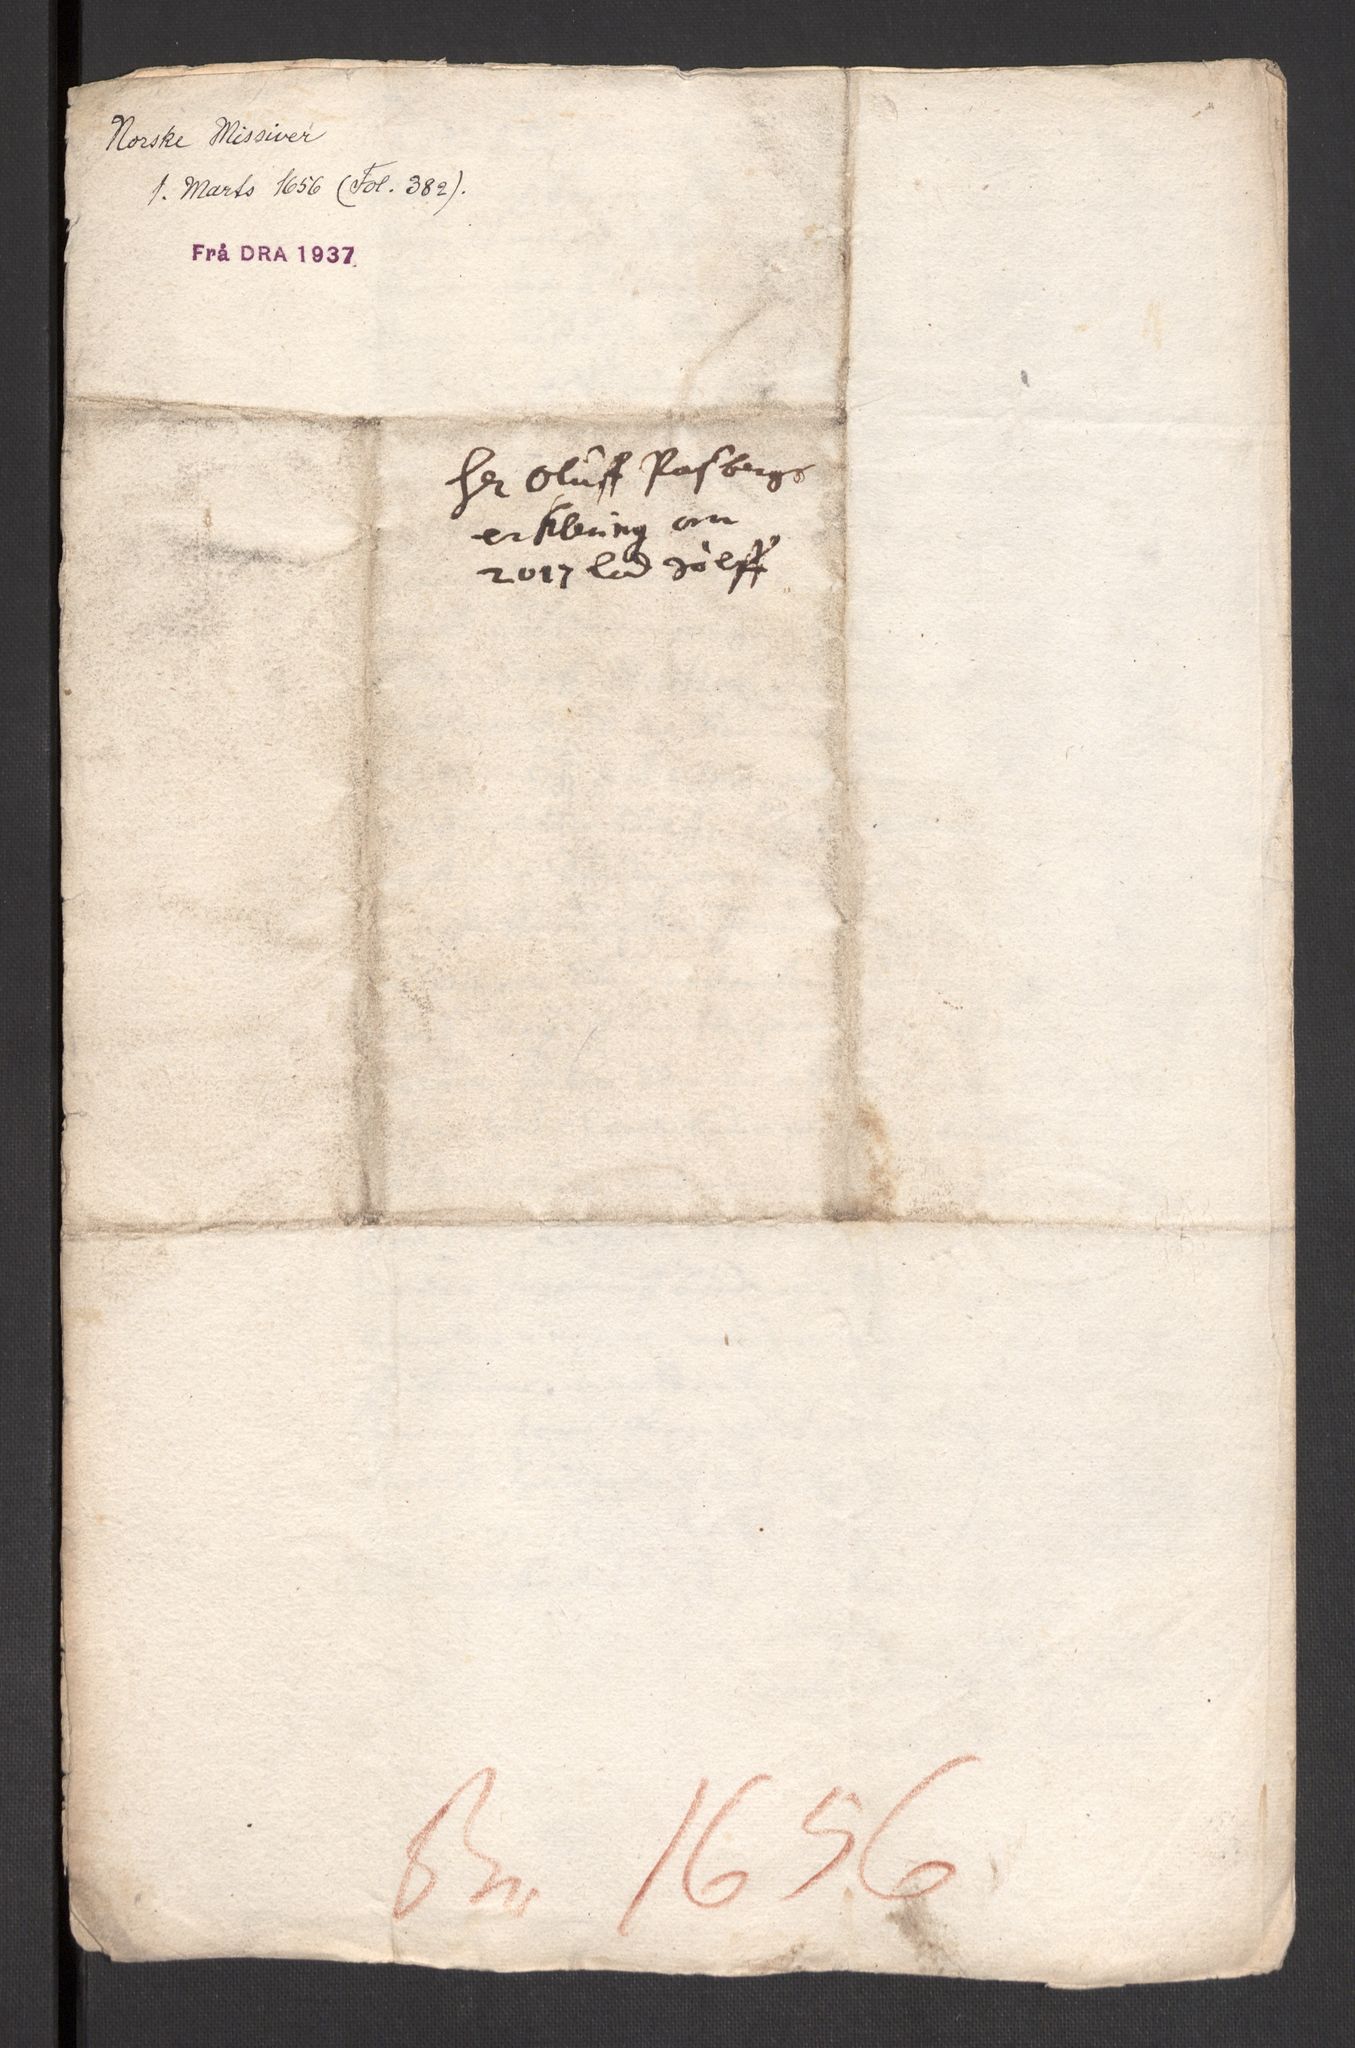 Norske Missiver
1. Marts 1656 (Fol. 382).
Frå DRA 1937
Her Oluff Pasbergs
erklering om
2017 lod Sölff
1656